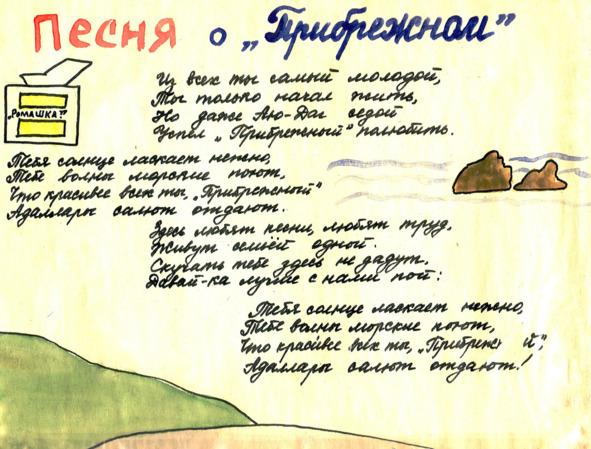 Песня о „Прибрежном"
Из всех ты самый молодой,
Ты только начал жить,
Но даже Аю-Даг седой
Успел „Прибрежный" полюбить.
„Ромашка"
Тебя солнце ласкает нежно,
Тебе волны морские поют,
Что красивее всех ты, „Прибрежный"
Адаллары салют отдают.
Здесь любят песни, любят труд,
Живут семьёй одной.
Скучать тебе здесь не дадут,
Давай-ка лучше с нами пой:
Тебя солнце ласкает нежно,
Тебе волны морские поют,
Что красивее всех ты, „Прибрежн й",
Адаллары салют отдают!